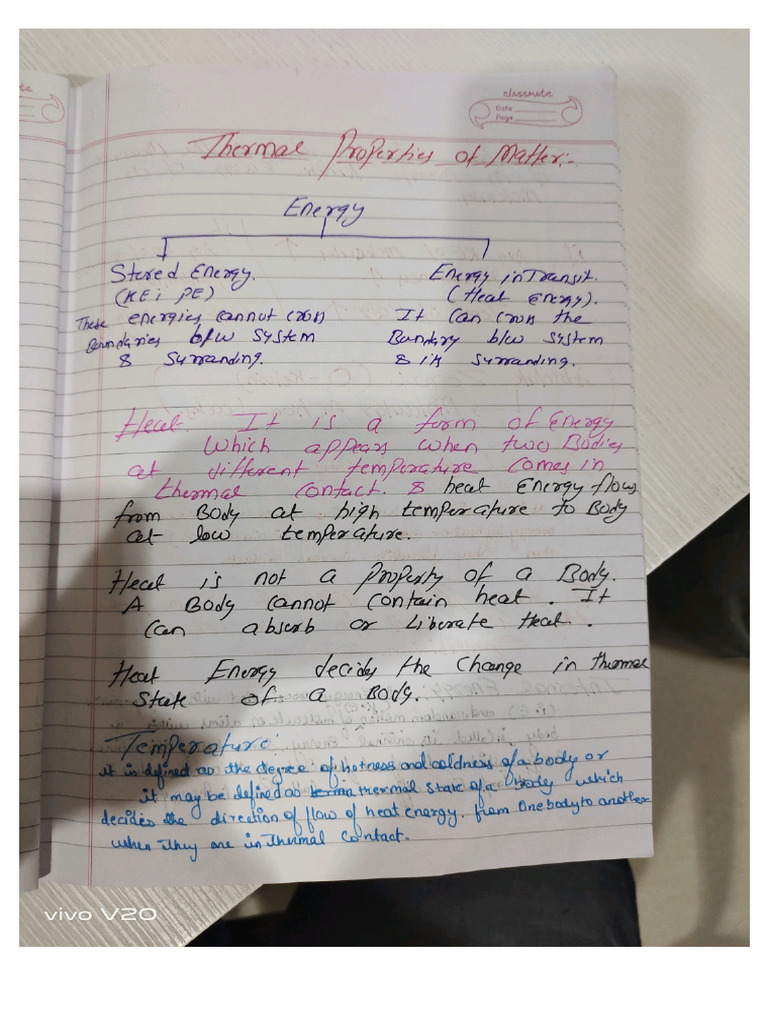 classmate
Date
Page
Thermal Properties of Matter:-
Energy
Stored Energy. Energy in Transit.
(KE; PE) (Heat Energy).
These energies cannot cross It can cross the
Boundaries b/w system Boundary b/w system
& Surranding. & its surranding.
Heat It is a form of Energy
Which appears when two Bodies
at different temperature comes in
thermal contact. & heat energy flows
from Body at high temperature to Body
at low temperature.
Heat is not a Property of a Body.
A Body cannot contain heat. It
can absorb or Liberate Heat.
Heat Energy decides the Change in thermal
State of a Body.
Temperature:
it is defined as the degree of hotness and coldness of a body or
it may be defined as thermal state of a body which
decides the direction of flow of heat energy, from one body to another
when they are in thermal contact.
vivo V20